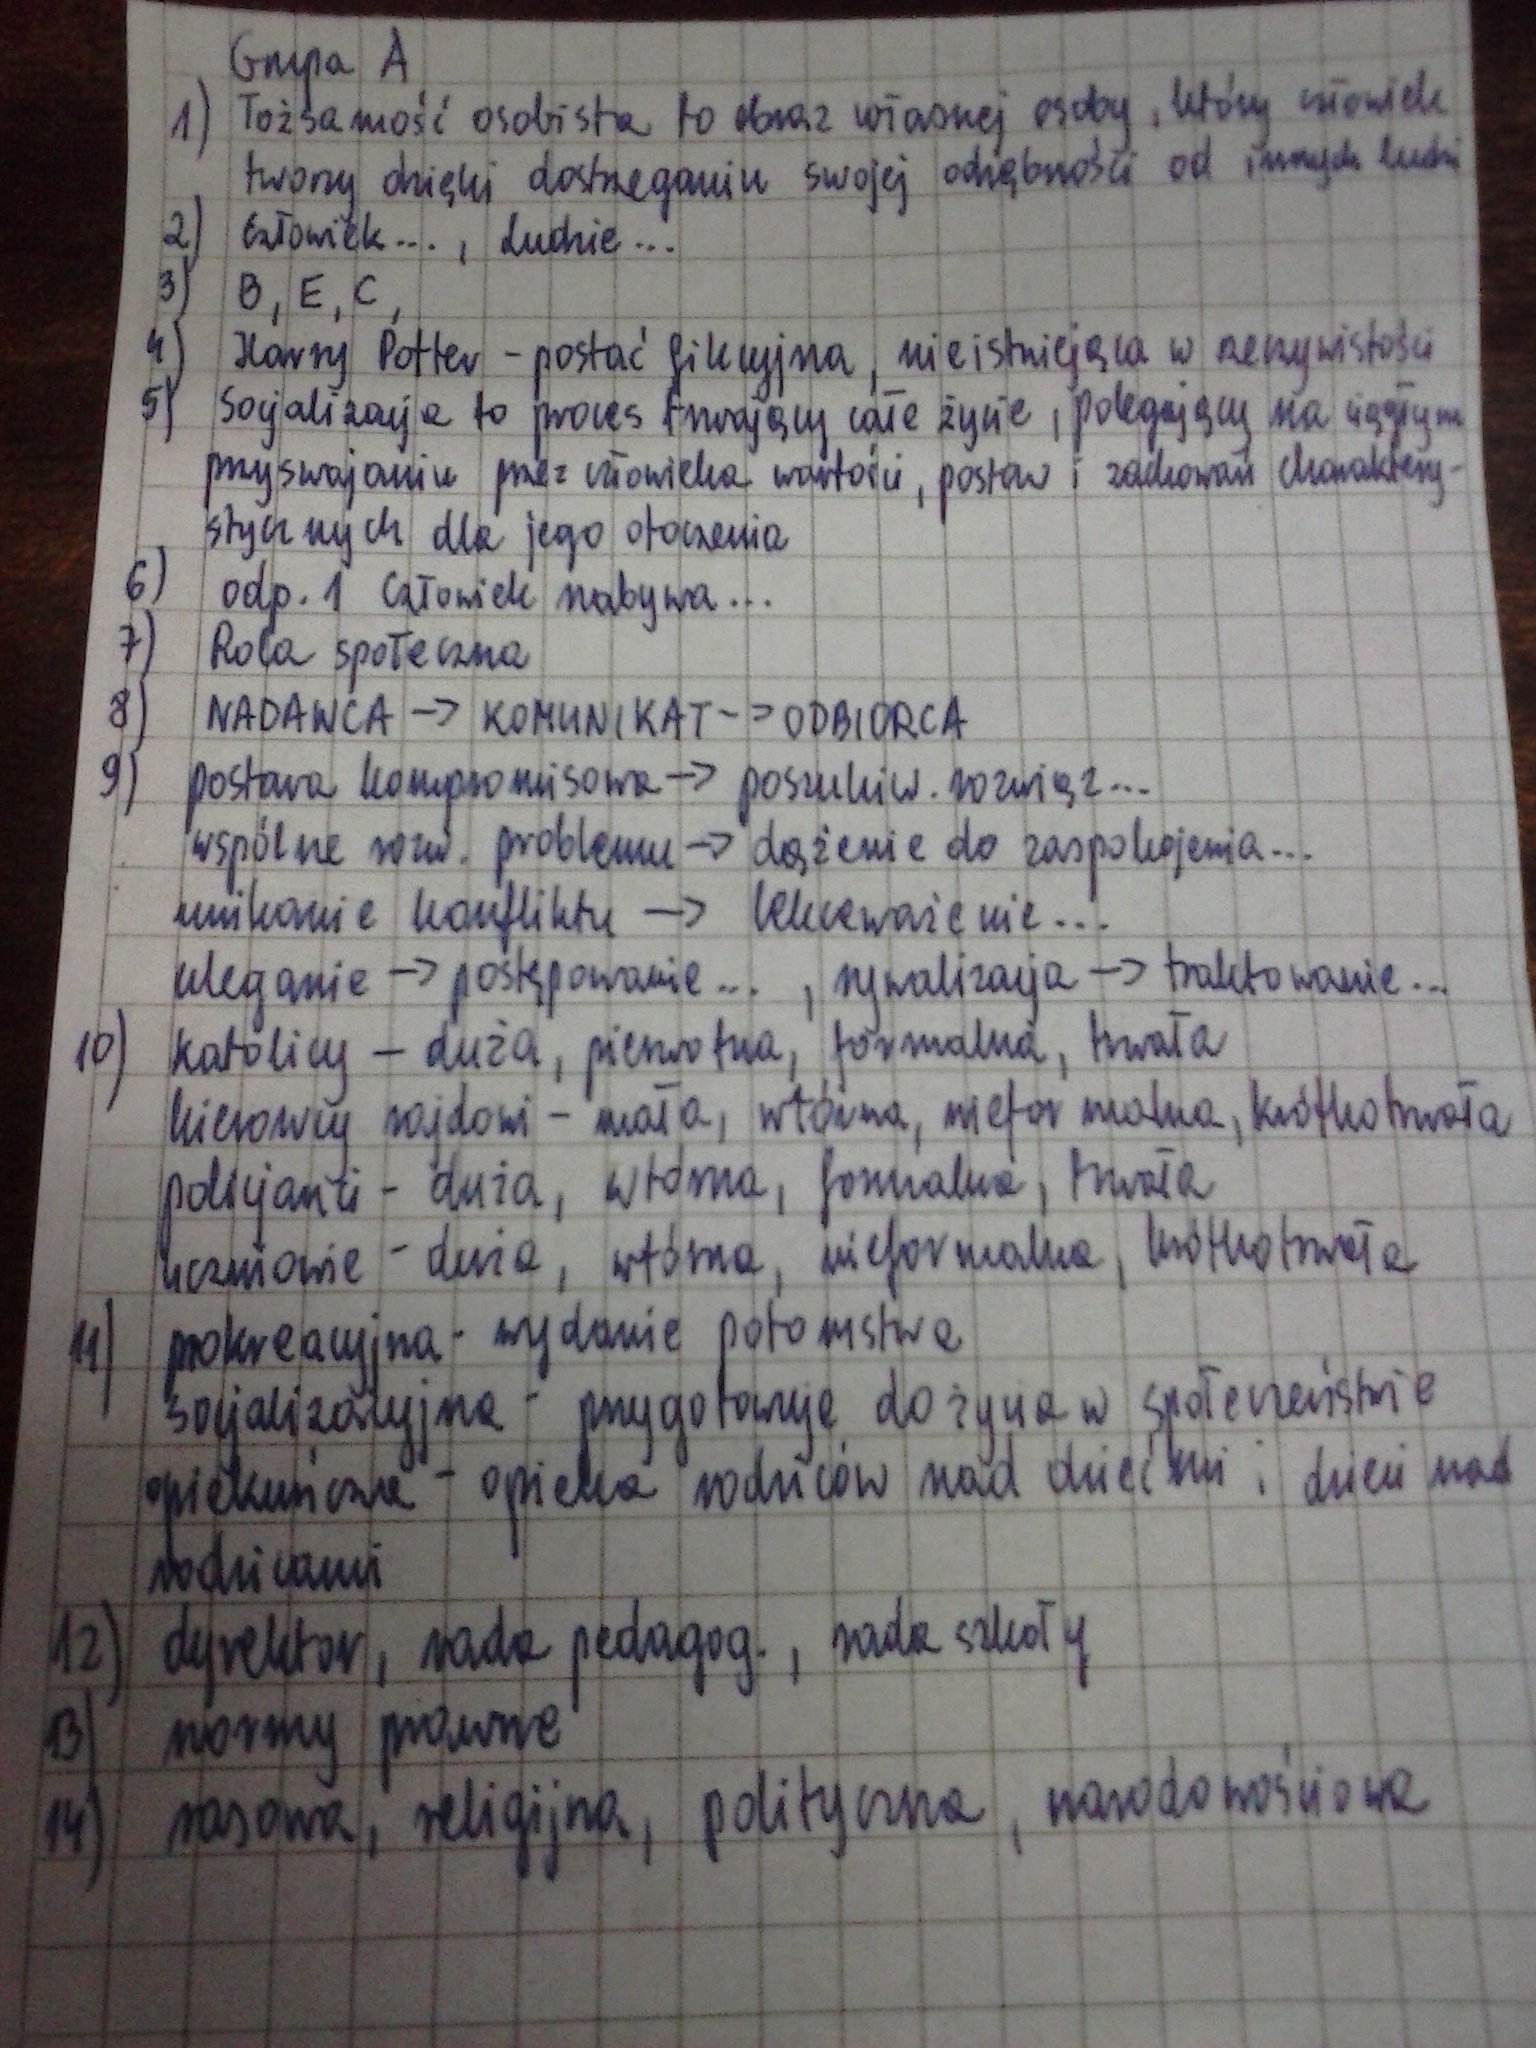 Grupa A
1) Tożsamość osobista to obraz własnej osoby, który człowiek
tworzy dzięki dostrzeganiu swojej odrębności od innych ludzi
2) Człowiek..., Ludzie...
3) B, E, C,
4) Harry Potter - postać fikcyjna, nieistniejąca w rzeczywistości
5) Socjalizacja to proces trwający całe życie, polegający na ciągłym
przyswajaniu przez człowieka wartości, postaw i zachowań charaktery-
stycznych dla jego otoczenia
6) odp. 1 Człowiek nabywa...
7) Rola społeczna
8) NADAWCA -> KOMUNIKAT -> ODBIORCA
9) postawa kompromisowa -> poszukiw. rozwiąz...
wspólne rozw. problemu -> dążenie do zaspokojenia...
unikanie konfliktu -> lekceważenie...
uleganie -> postępowanie..., rywalizacja -> traktowanie...
10) katolicy - duża, pierwotna, formalna, trwała
kierowcy rajdowi - mała, wtórna, nieformalna, krótkotrwała
policjanci - duża, wtórna, formalna, trwała
uczniowie - duża, wtórna, nieformalna, krótkotrwała
11) prokreacyjna - wydanie potomstwa
socjalizacyjna - przygotowuje do życia w społeczeństwie
opiekuńcza - opieka rodziców nad dziećmi i dzieci nad
rodzicami
12) dyrektor, rada pedagog., rada szkoły
13) normy prawne
14) rasowa, religijna, polityczna, narodowościowa